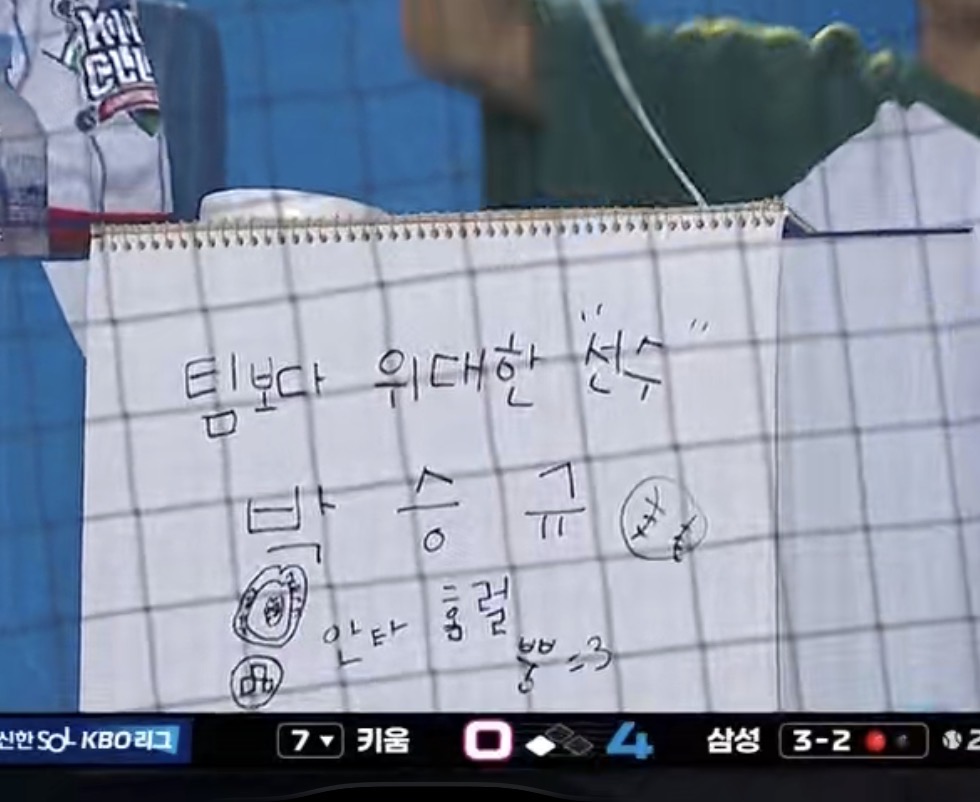 팀보다 위대한 "선수"
박승규
안타 홈럴
뿅=3
신한 SOL KBO 리그 7▼ 키움 0 4 삼성 3-2